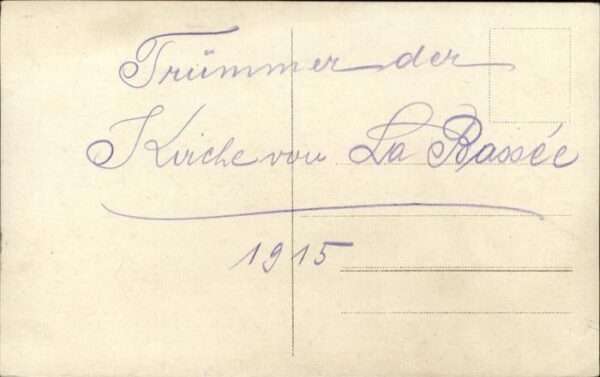 Trümmer der
Kirche von La Bassée
1915